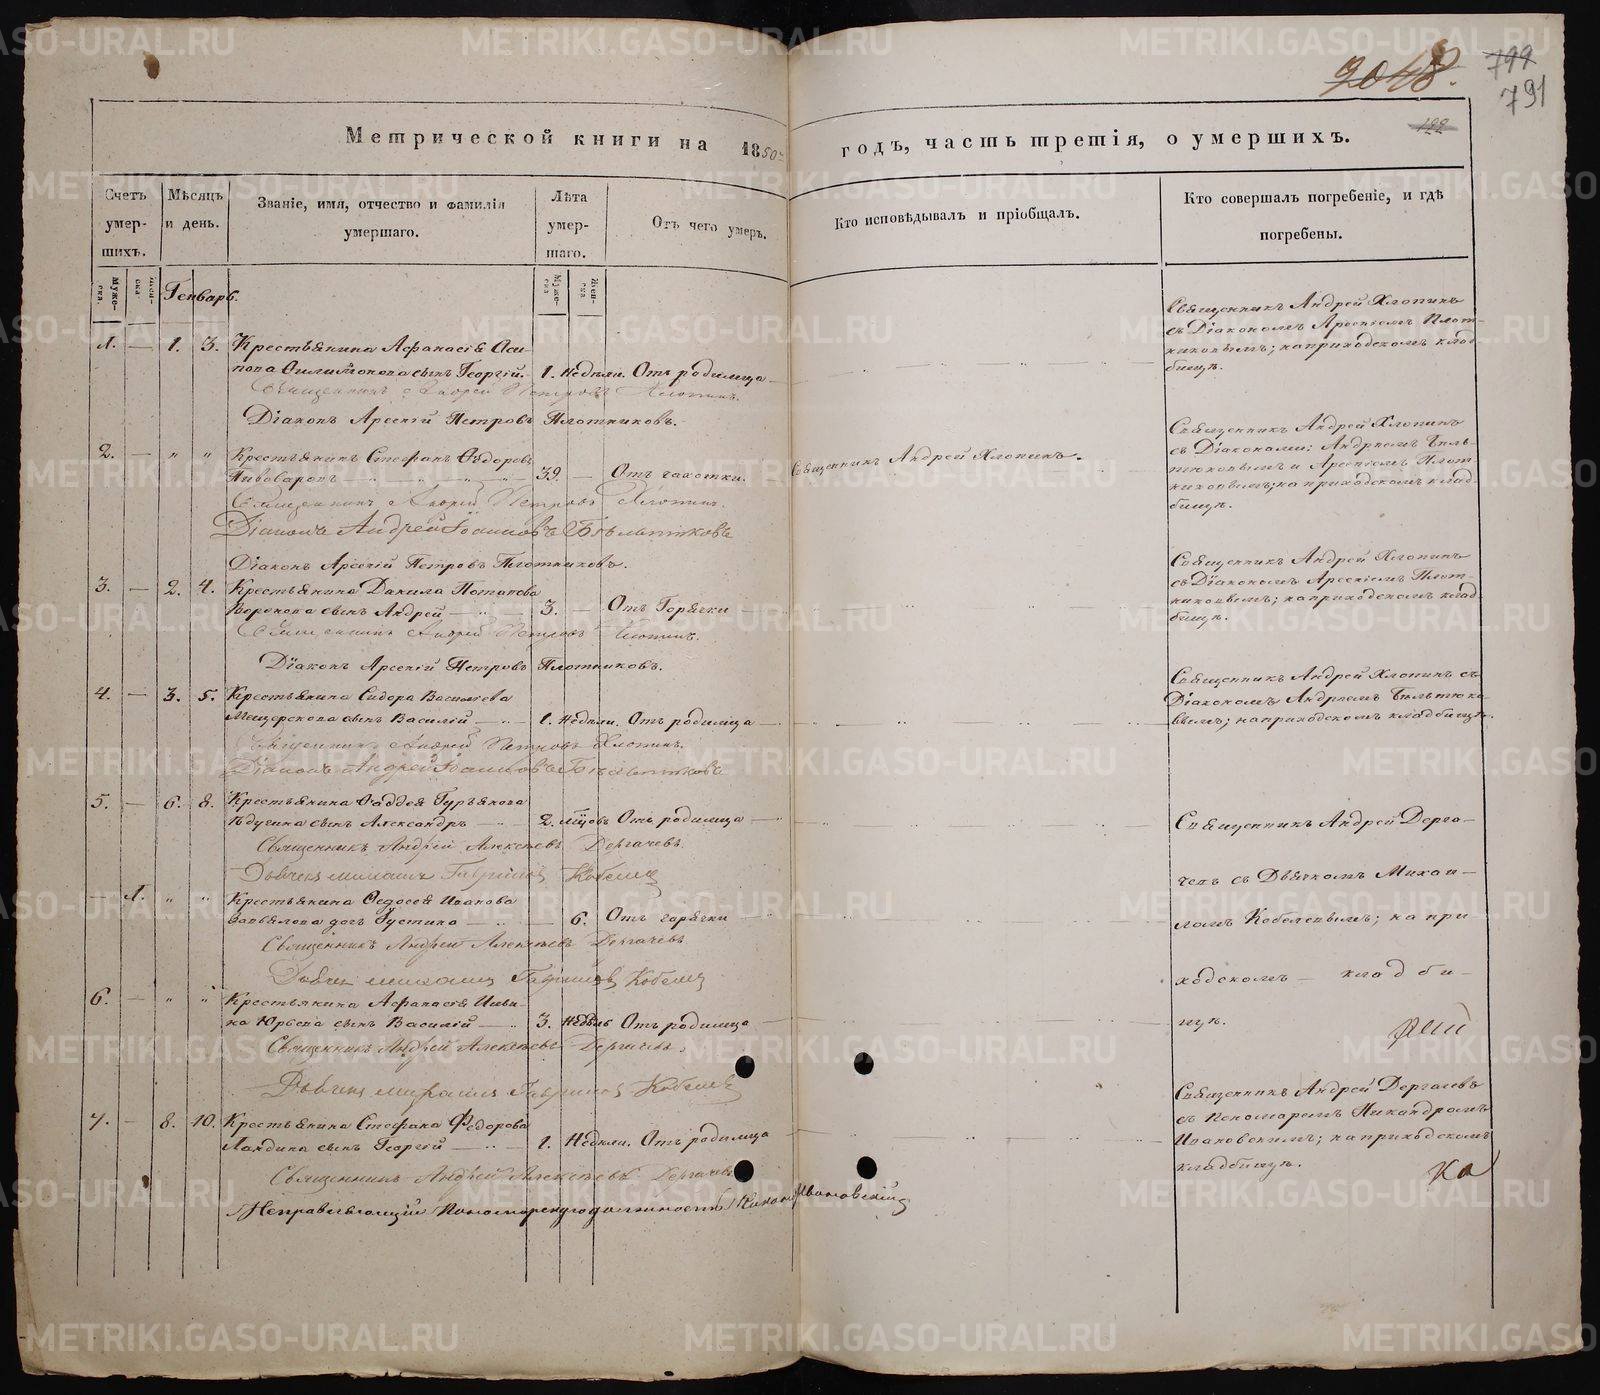 2048.
799
791
199
Метрической книги на 1850 годъ, часть третія, о умершихъ.
Счетъ умер- шихъ.
Мѣсяцъ и день.
Званіе, имя, отчество и фамилія умершаго.
Лѣта умер- шаго.
Отъ чего умеръ.
Кто исповѣдывалъ и пріобщалъ.
Кто совершалъ погребеніе, и гдѣ погребены.
Муже- ска.
Жен- ска
Генварь.
Муже- ска
Жен- ска
1. — 1. 3. Крестьянина Афанасія Оси-
пова Филимонова сынъ Георгій. 1. недѣли. Отъ родимца
Священникъ Андрей Петровъ Хлопинъ.
Діаконъ Арсеній Петровъ Плотниковъ.
Священникъ Андрей Хлопинъ
съ Діакономъ Арсеніемъ Плот-
никовымъ; на приходскомъ клад-
бищѣ.
2. — " " Крестьянинъ Стефанъ Ѳедоровъ
Пивоваровъ 39. — Отъ чахотки.
Священникъ Андрей Хлопинъ.
Священникъ Андрей Петровъ Хлопинъ.
Діаконъ Андрей Іоанновъ Бѣльтюковъ
Діаконъ Арсеній Петровъ Плотниковъ.
Священникъ Андрей Хлопинъ
съ Діаконами: Андреемъ Бѣль-
тюковымъ и Арсеніемъ Плот-
никовымъ; на приходскомъ клад-
бищѣ.
3. — 2. 4. Крестьянина Данила Потапова
Воронова сынъ Андрей 3. — Отъ Горячки
Священникъ Андрей Петровъ Хлопинъ.
Діаконъ Арсеній Петровъ Плотниковъ.
Священникъ Андрей Хлопинъ
съ Діакономъ Арсеніемъ Плот-
никовымъ; на приходскомъ клад-
бищѣ.
4. — 3. 5. Крестьянина Сидора Васильева
Мещерскова сынъ Василій 1. недѣли. Отъ родимца
Священникъ Андрей Петровъ Хлопинъ.
Діаконъ Андрей Іоанновъ Бѣльтюковъ
Священникъ Андрей Хлопинъ съ
Діакономъ Андреемъ Бѣльтюко-
вымъ; на приходскомъ кладбищѣ.
5. — 6. 8. Крестьянина Ѳаддея Гурьянова
сынъ Александръ 2. мцовъ Отъ родимца
Священникъ Андрей Алексѣевъ Дергачевъ.
Дьячекъ Михаилъ Гавриловъ Кобелев
— 1. " " Крестьянина Ѳедосея Иванова
Завьялова дочь Густина — 6. Отъ горячки
Священникъ Андрей Алексѣевъ Дергачевъ
Дьячек Михаилъ Гавриловъ Кобелев
6. — " " Крестьянина Афанасія
сынъ Василій 3. недѣль Отъ родимца
Священникъ Андрей Алексѣевъ Дергачевъ.
Дьячекъ Михаилъ Гавриловъ Кобелев
Священникъ Андрей Дерга-
чевъ съ Дьячкомъ Михаи-
ломъ Кобелевымъ; на при
ходскомъ — кладби-
щѣ.
7. — 8. 10. Крестьянина Стефана Федорова
Ландина сынъ Георгій 1. недѣли. Отъ родимца
Священникъ Андрей Алексѣевъ Дергачевъ
Исправляющій Пономарскую должность Ивановскій
Священникъ Андрей Дергачевъ
съ Пономаремъ Никандромъ
Ивановскимъ; на приходскомъ
кладбищѣ.
ка
METRIKI.GASO-URAL.RU